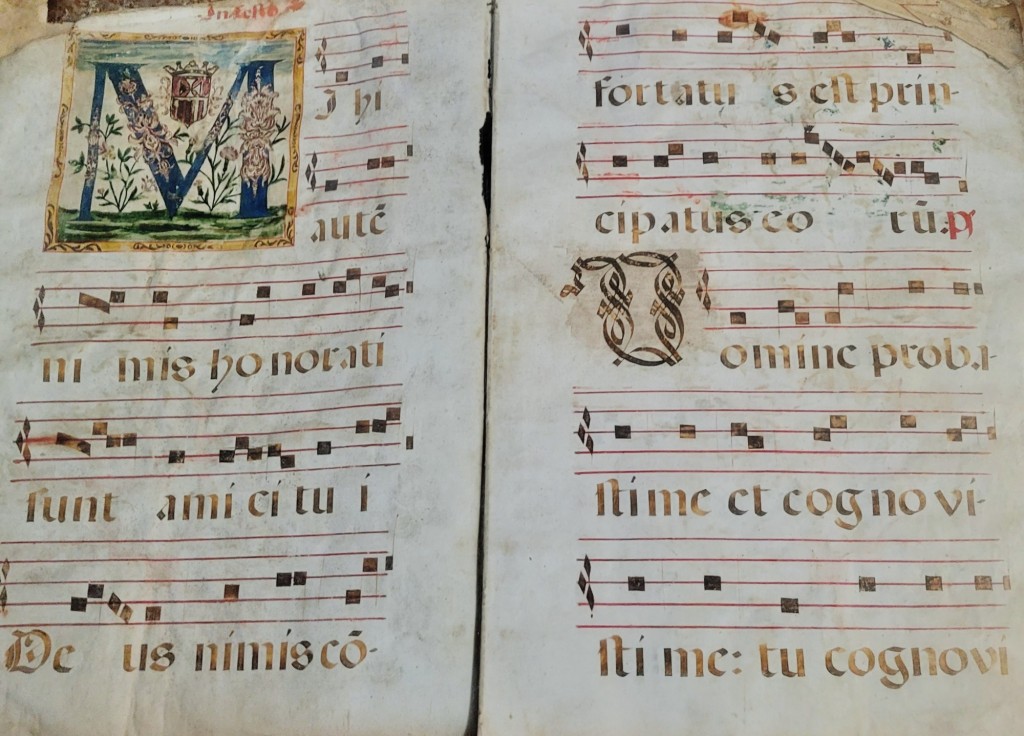 In festo
MI hi
autē
ni mis honorati
sunt amici tu i
De us nimis cō-
fortatu s est prin-
cipatus co rū: ps
Domine proba-
sti me et cognovi-
sti me: tu cognovi